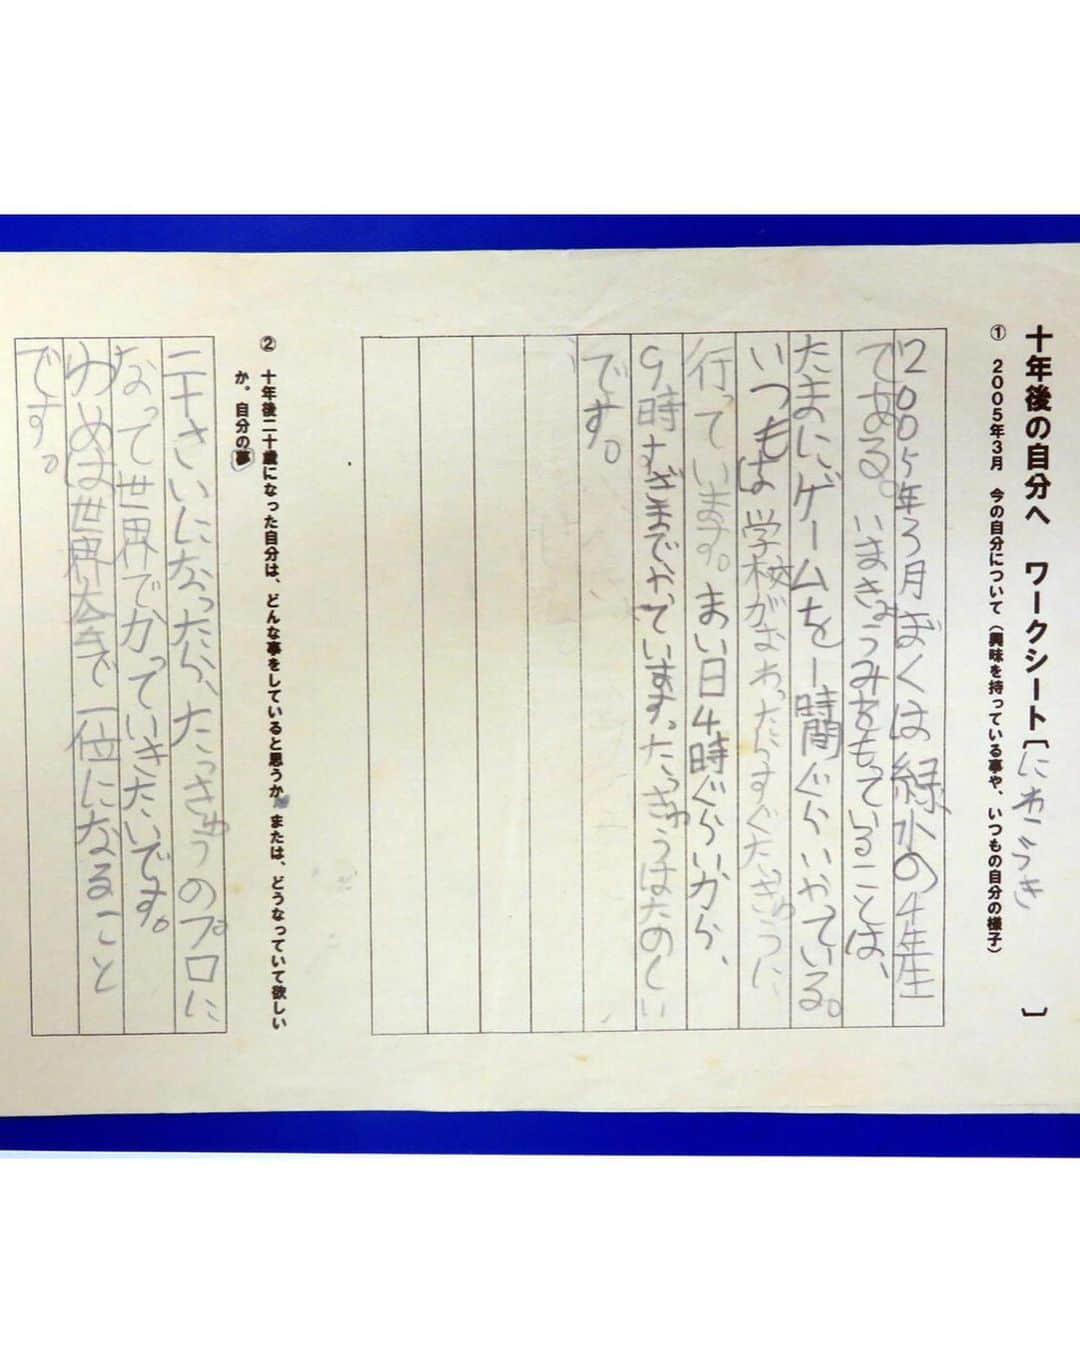 十年後の自分へ　ワークシート［にわ こうき　］
①　２００５年３月　今の自分について（興味を持っている事や、いつもの自分の様子）
2005年3月ぼくは緑小の4年生
である。いまきょうみをもっていることは、
たまにゲームを一時間ぐらいやている。
いつもは学校がおわったらすぐたっきゅうに
行っています。まい日4時ぐらいから、
9時すぎまでやっています。たっきゅうはたのしい
です。
②　十年後二十歳になった自分は、どんな事をしていると思うか。または、どうなっていて欲しい
か。自分の夢
二十さいになったら、たっきゅうのプロに
なって世界でかっていきたいです。
ゆめは世界大会で一位になること
です。